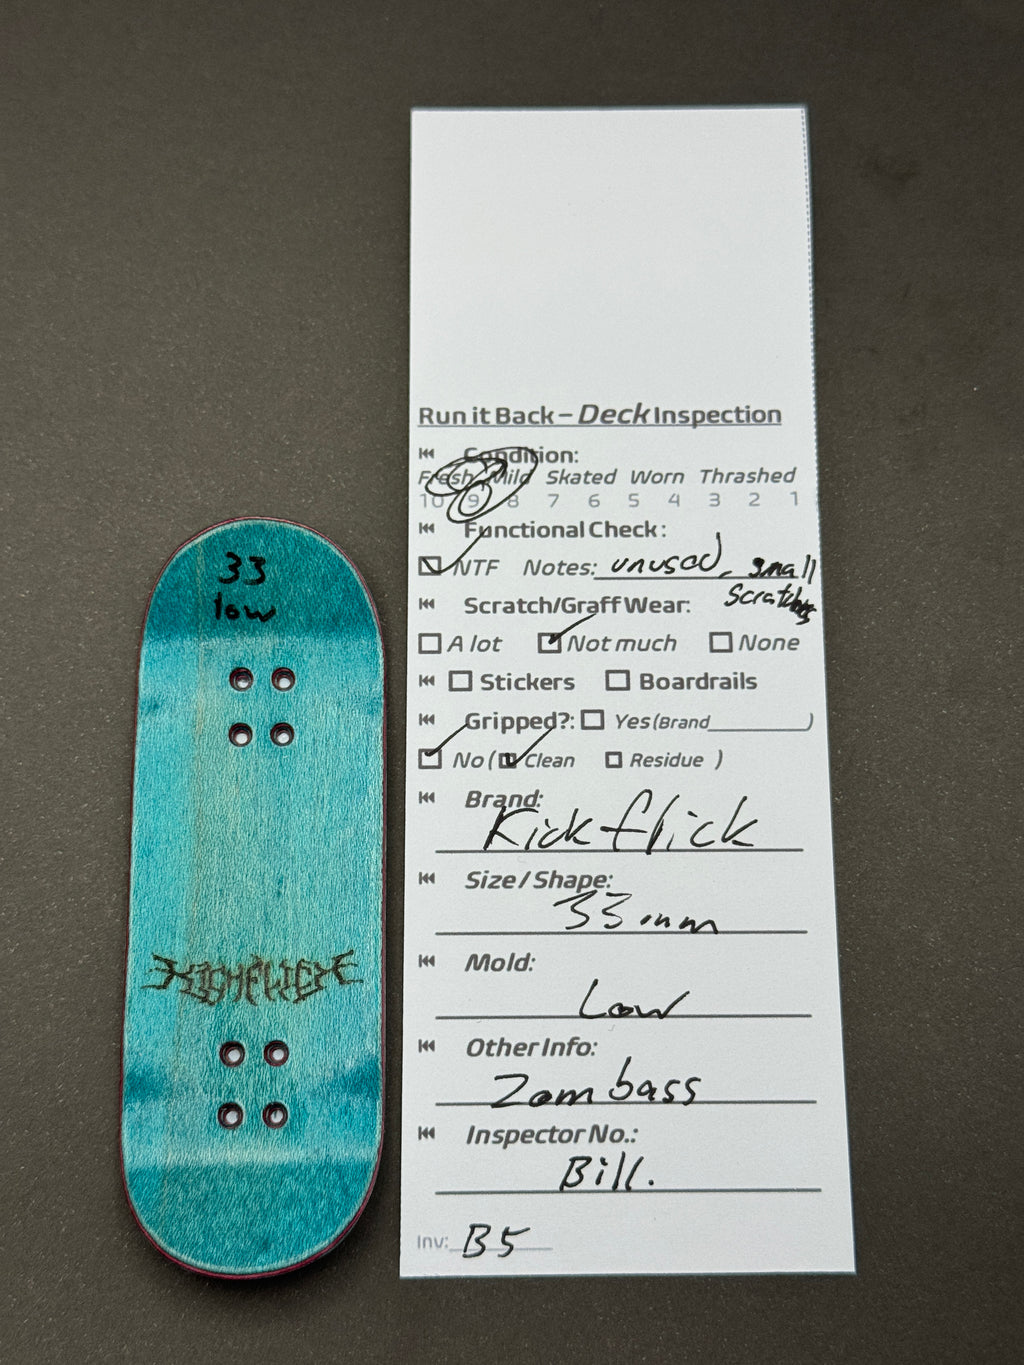 33
low
KICKFLICK
Run it Back – Deck Inspection
Condition:
Fresh Mild Skated Worn Thrashed
10 9 8 7 6 5 4 3 2 1
Functional Check:
NTF Notes: unused, small
scratches
Scratch/Graff Wear:
A lot Not much None
Stickers Boardrails
Gripped?: Yes (Brand__________)
No ( Clean Residue )
Brand:
Kickflick
Size / Shape:
33 mm
Mold:
Low
Other Info:
Zombass
Inspector No.:
Bill.
Inv: B5